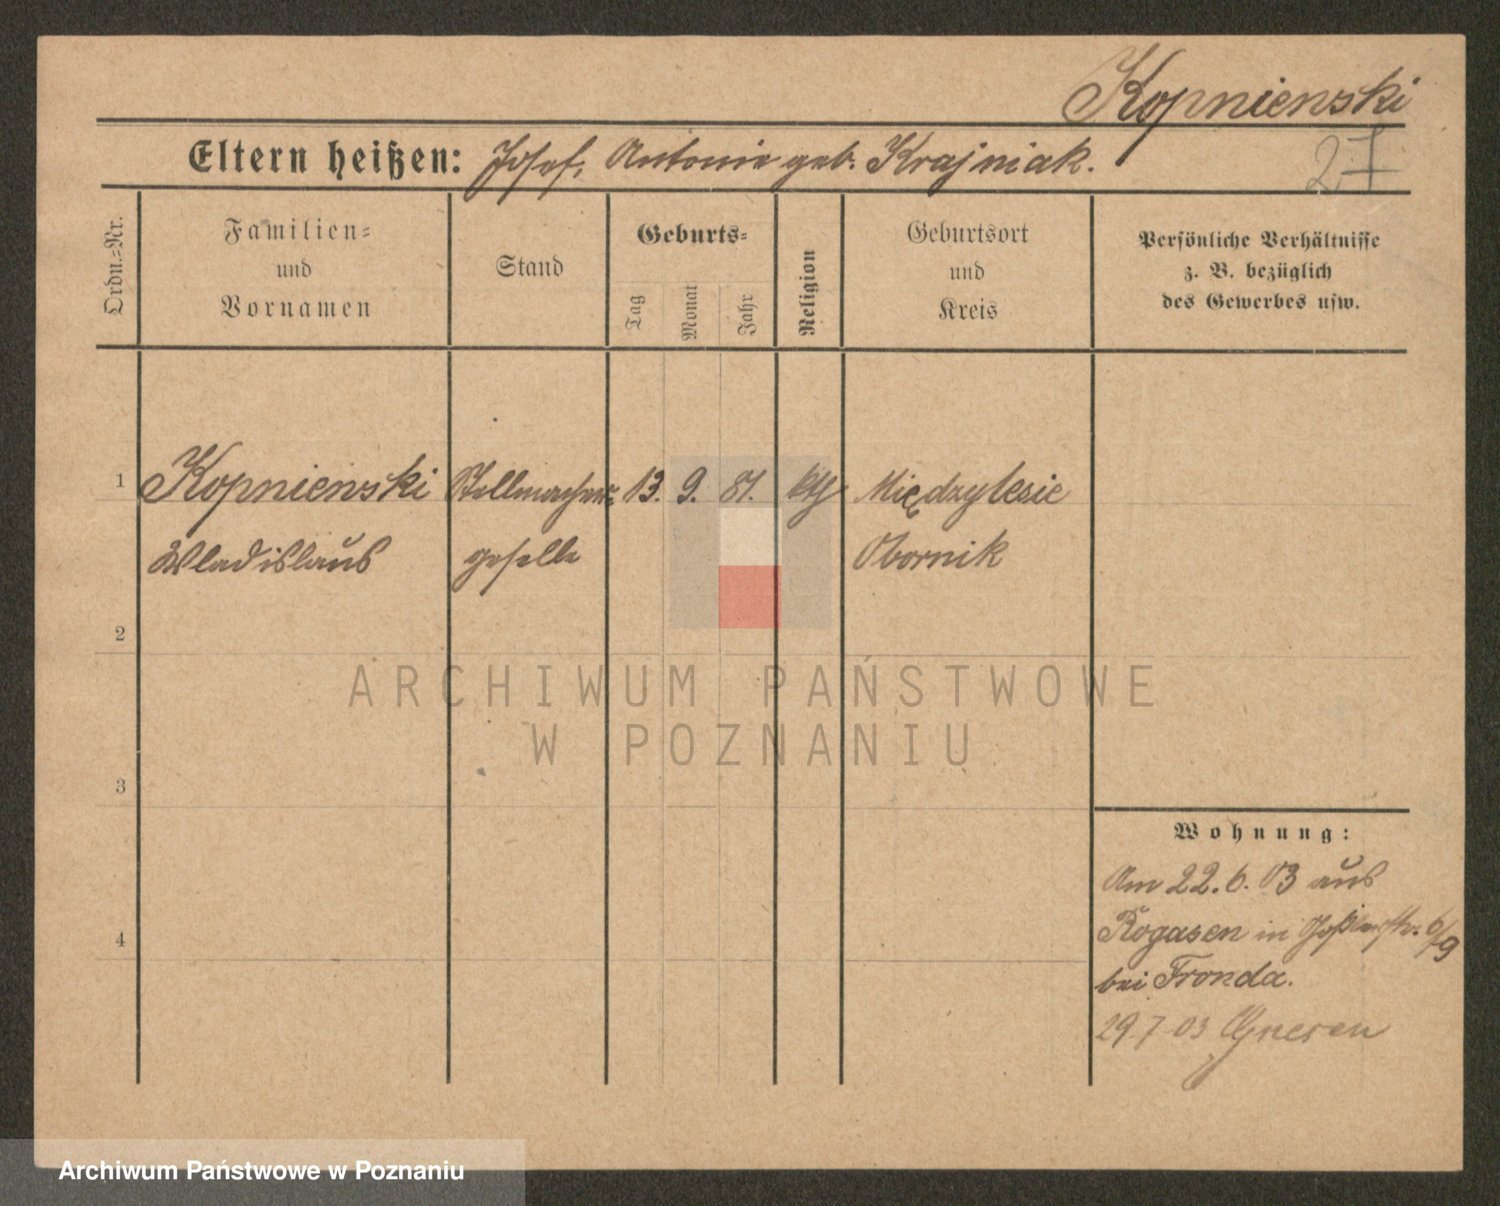 Kopnienski
Eltern heißen: Josef, Antonie geb. Krajniak.
27
Ordn.-Nr.
Familien-
und
Vornamen
Stand
Geburts-
Tag
Monat
Jahr
Religion
Geburtsort
und
Kreis
Persönliche Verhältnisse
z. B. bezüglich
des Gewerbes usw.
1 Kopnienski Stellmacher- 13. 9. 81. kth Międzylesie
Wladislaus geselle Obornik
2
3
4
ARCHIWUM PAŃSTWOWE
W POZNANIU
Wohnung:
Am 22.6.03 aus
Rogasen in
bei Fronda.
29.7 03 Gnesen
Archiwum Państwowe w Poznaniu